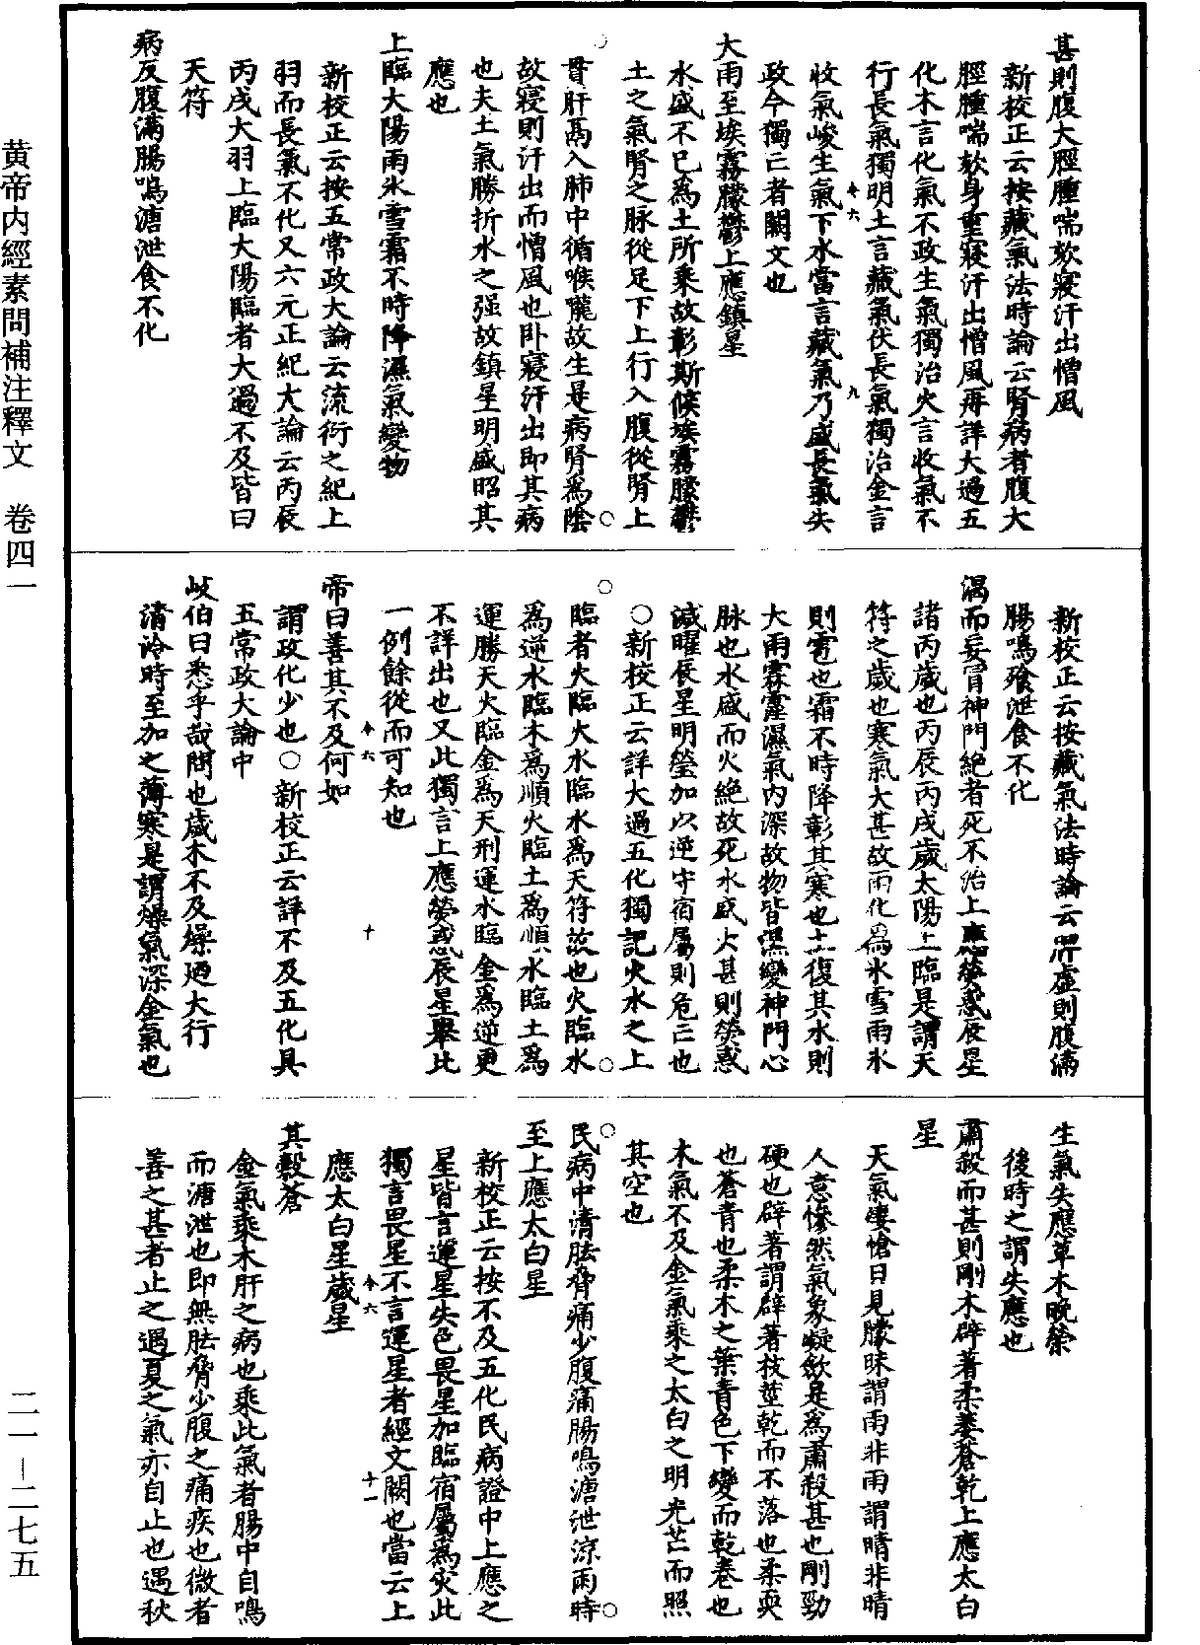 甚則腹大脛腫喘欬寢汗出憎風
新校正云按藏氣法時論云腎病者腹大
脛腫喘欬身重寢汗出憎風再詳大過五
化木言化氣不政生氣獨治火言收氣不
行長氣獨明土言藏氣伏長氣獨治金言
收氣峻生氣下水當言藏氣乃盛長氣失
政今獨亡者闕文也
大雨至埃霧朦鬱上應鎮星
水盛不已為土所乘故彰斯候埃霧朦鬱
土之氣腎之脉從足下上行入腹從腎上
貫肝鬲入肺中循喉嚨故生是病腎為陰
故寢則汗出而憎風也卧寢汗出即其病
也夫土氣勝折水之强故鎮星明盛昭其
應也
上臨大陽雨氷雪霜不時降濕氣變物
新校正云按五常政大論云流衍之紀上
羽而長氣不化又六元正紀大論云丙辰
丙戌大羽上臨大陽臨者大過不及皆曰
天符
病反腹滿腸鳴溏泄食不化
新校正云按藏氣法時論云脾虛則腹滿
腸鳴飱泄食不化
渴而妄冒神門絕者死不治上應熒惑辰星
諸丙歲也丙辰丙戌歲太陽上臨是謂天
符之歲也寒氣大甚故雨化為氷雪雨氷
則雹也霜不時降彰其寒也土復其水則
大雨霖霪濕氣內深故物皆濕變神門心
脉也水盛而火絕故死水盛火甚則熒惑
減曜辰星明瑩加以逆守宿屬則危亡也
○新校正云詳大過五化獨記火水之上
臨者火臨火水臨水為天符故也火臨水
為逆水臨木為順火臨土為順水臨土為
運勝天火臨金為天刑運水臨金為逆更
不詳出也又此獨言上應熒惑辰星舉此
一例餘從而可知也
帝曰善其不及何如
謂政化少也○新校正云詳不及五化具
五常政大論中
岐伯曰悉乎哉問也歲木不及燥迺大行
清冷時至加之薄寒是謂燥氣深金氣也
生氣失應草木晚榮
後時之謂失應也
肅殺而甚則剛木辟著柔萎蒼乾上應太白
星
天氣悽愴日見朦昧謂雨非雨謂晴非晴
人意慘然氣象凝斂是為肅殺甚也剛勁
硬也辟著謂辟著枝莖乾而不落也柔耎
也蒼青也柔木之葉青色下變而乾卷也
木氣不及金氣乘之太白之明光芒而照
其空也
民病中清胠脅痛少腹痛腸鳴溏泄涼雨時
至上應太白星
新校正云按不及五化民病證中上應之
星皆言運星失色畏星加臨宿屬為災此
獨言畏星不言運星者經文闕也當云上
應太白星歲星
其穀蒼
金氣乘木肝之病也乘此氣者腸中自鳴
而溏泄也即無胠脅少腹之痛疾也微者
善之甚者止之遇夏之氣亦自止也遇秋
黄帝内經素問補注釋文 卷四一
二一—二七五